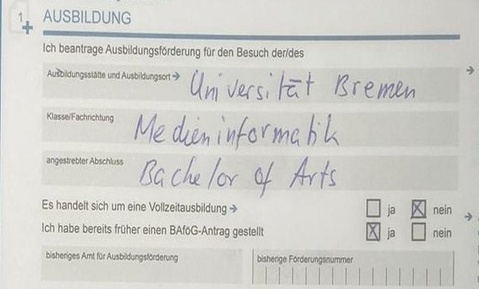 1 AUSBILDUNG
Ich beantrage Ausbildungsförderung für den Besuch der/des
Ausbildungsstätte und Ausbildungsort → Universität Bremen
Klasse/Fachrichtung Medieninformatik
angestrebter Abschluss Bachelor of Arts
Es handelt sich um eine Vollzeitausbildung → ☐ ja ☒ nein →
Ich habe bereits früher einen BAföG-Antrag gestellt ☒ ja ☐ nein
bisheriges Amt für Ausbildungsförderung bisherige Förderungsnummer